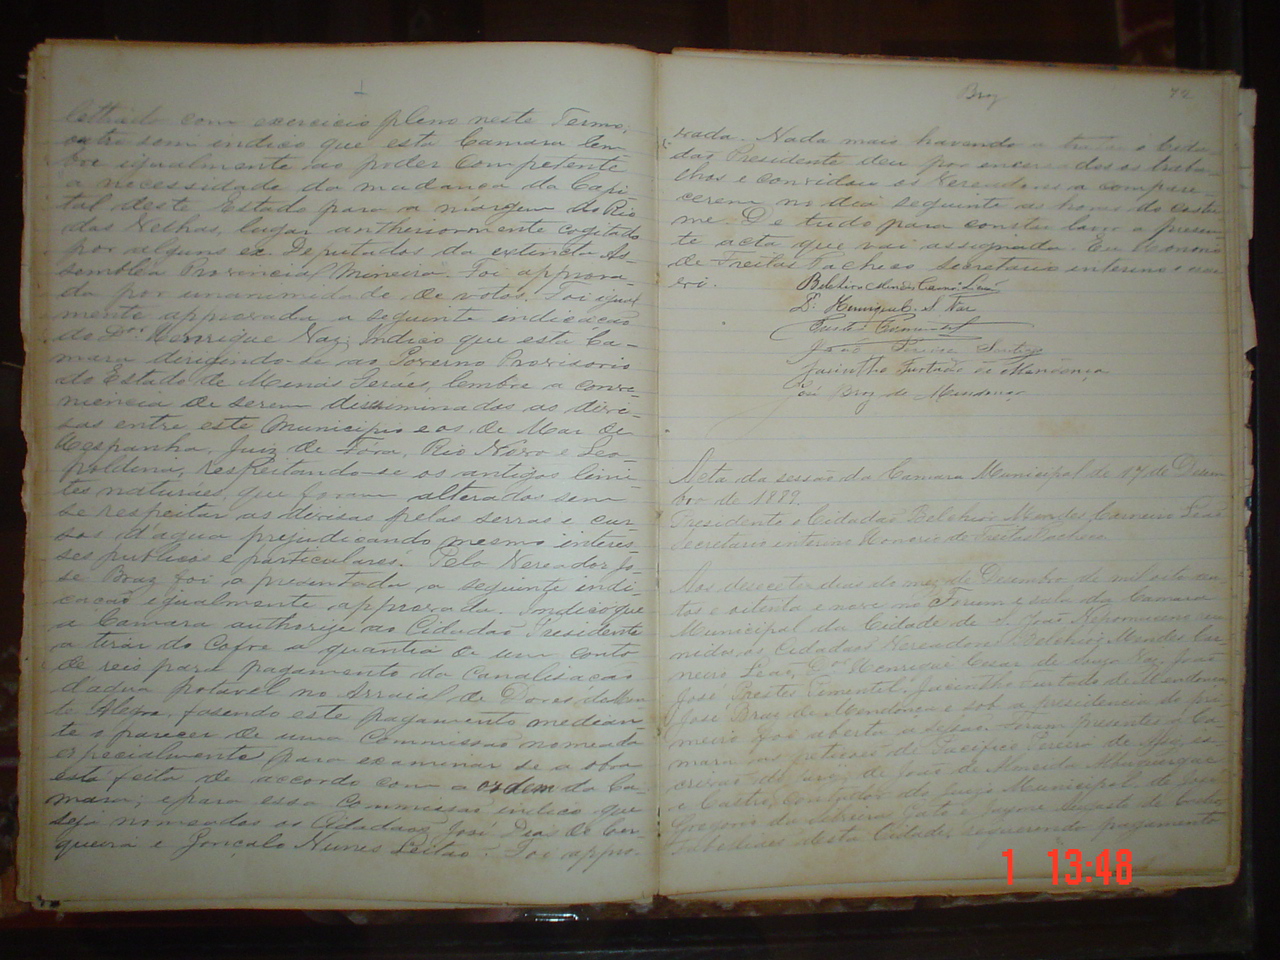 lettrado com exercicio pleno neste Termo,
outro som indico que esta Camara lem
bre igualmente ao poder competente
a necessidade da mudança da Capi
tal deste Estado para a márgem do Rio
das Velhas, lugar antheriormente cogitado
por alguns ex Deputados da extincta As-
sembléa Provincial Mineira. Foi approva-
da por unanimidade de votos. Foi igual
mente approvada a seguinte indicação
do Dor Henrique Vaz: Indico que esta Ca-
mara dirigindo-se ao Governo Provisorio
do Estado de Minas Geraes, lembre a conve-
niencia de serem discriminadas as divi-
sas entre este Municipio e os de Mar de
Hespanha, Juiz de Fóra, Rio Novo e Leo-
poldina, respeitando-se os antigos limi-
tes naturáes, que foram alterados sem
se respeitar as divisas pelas serras e cur-
sos d'agua prejudicando mesmo interes-
ses publicos e particulares. Pelo Vereador Jo-
se Braz foi apresentada a seguinte indi-
cacão egualmente approvada. Indico que
a Camara authorize ao Cidadão Presidente
a tirar do Cofre a quantia de um conto
de reis para pagamento da canalisacão
d'agua potável no Arraial de Dores do Mon
te Alegre, fasendo este pagamento median-
te o parecer de uma Commissão nomeada
especialmente para examinar se a obra
está feita de accordo com a ordem da Ca-
mara; e para essa Commissão indico que
sejá nomeados os Cidadãos José Dias de Cer-
queira e Gonçalo Nunes Leitão. Foi appro-
Braz 72
vada. Nada mais havendo a tratar o Cida-
dão Presidente deu por encerrados os traba-
lhos e convidou os Vereadores a compare-
cerem no dia seguinte as horas do costu
me. De tudo para constar lavro a presen-
te acta que vai assignada. Eu Honorio
de Freitas Pacheco secretario interino escre-
vi.
Belchior Mendes Carnrº Leão
Dr Henrique C. S. Vaz
Prestes Pimentel
João Pereira Santiago
Jacintho Furtado de Mendonça
José Braz de Mendonça
Acta da sessão da Camara Municipal de 17 de Dezem
bro de 1889.
Presidente o Cidadão Belchior Mendes Carneiro Leão
Secretario interino Honorio de Freitas Pacheco
Aos desecete dias do mez de Dezembro de mil oito cen-
tos e oitenta e nove no Forum e sala da Camara
Municipal da Cidade de S. João Nepomuceno reu-
nidos os Cidadãos Vereadores Belchior Mendes Car-
neiro Leão, Dor Henrique Cesar de Souza Vaz, João
José Prestes Pimentel, Jacintho Furtado de Mendonca
José Braz de Mendonça e sob a presidencia do pri-
meiro foi aberta a sessão. Foram presentes á Ca-
mara as petições de Pacifico Pereira de
crivão do jury, de João de Almeida Albuquerque
e Castro, contador do Juizo Municipal, de José
Gregorio da Silveira Gato e Jayme Augusto de
Tabelliães desta Cidade, requerendo pagamento
1 13:48